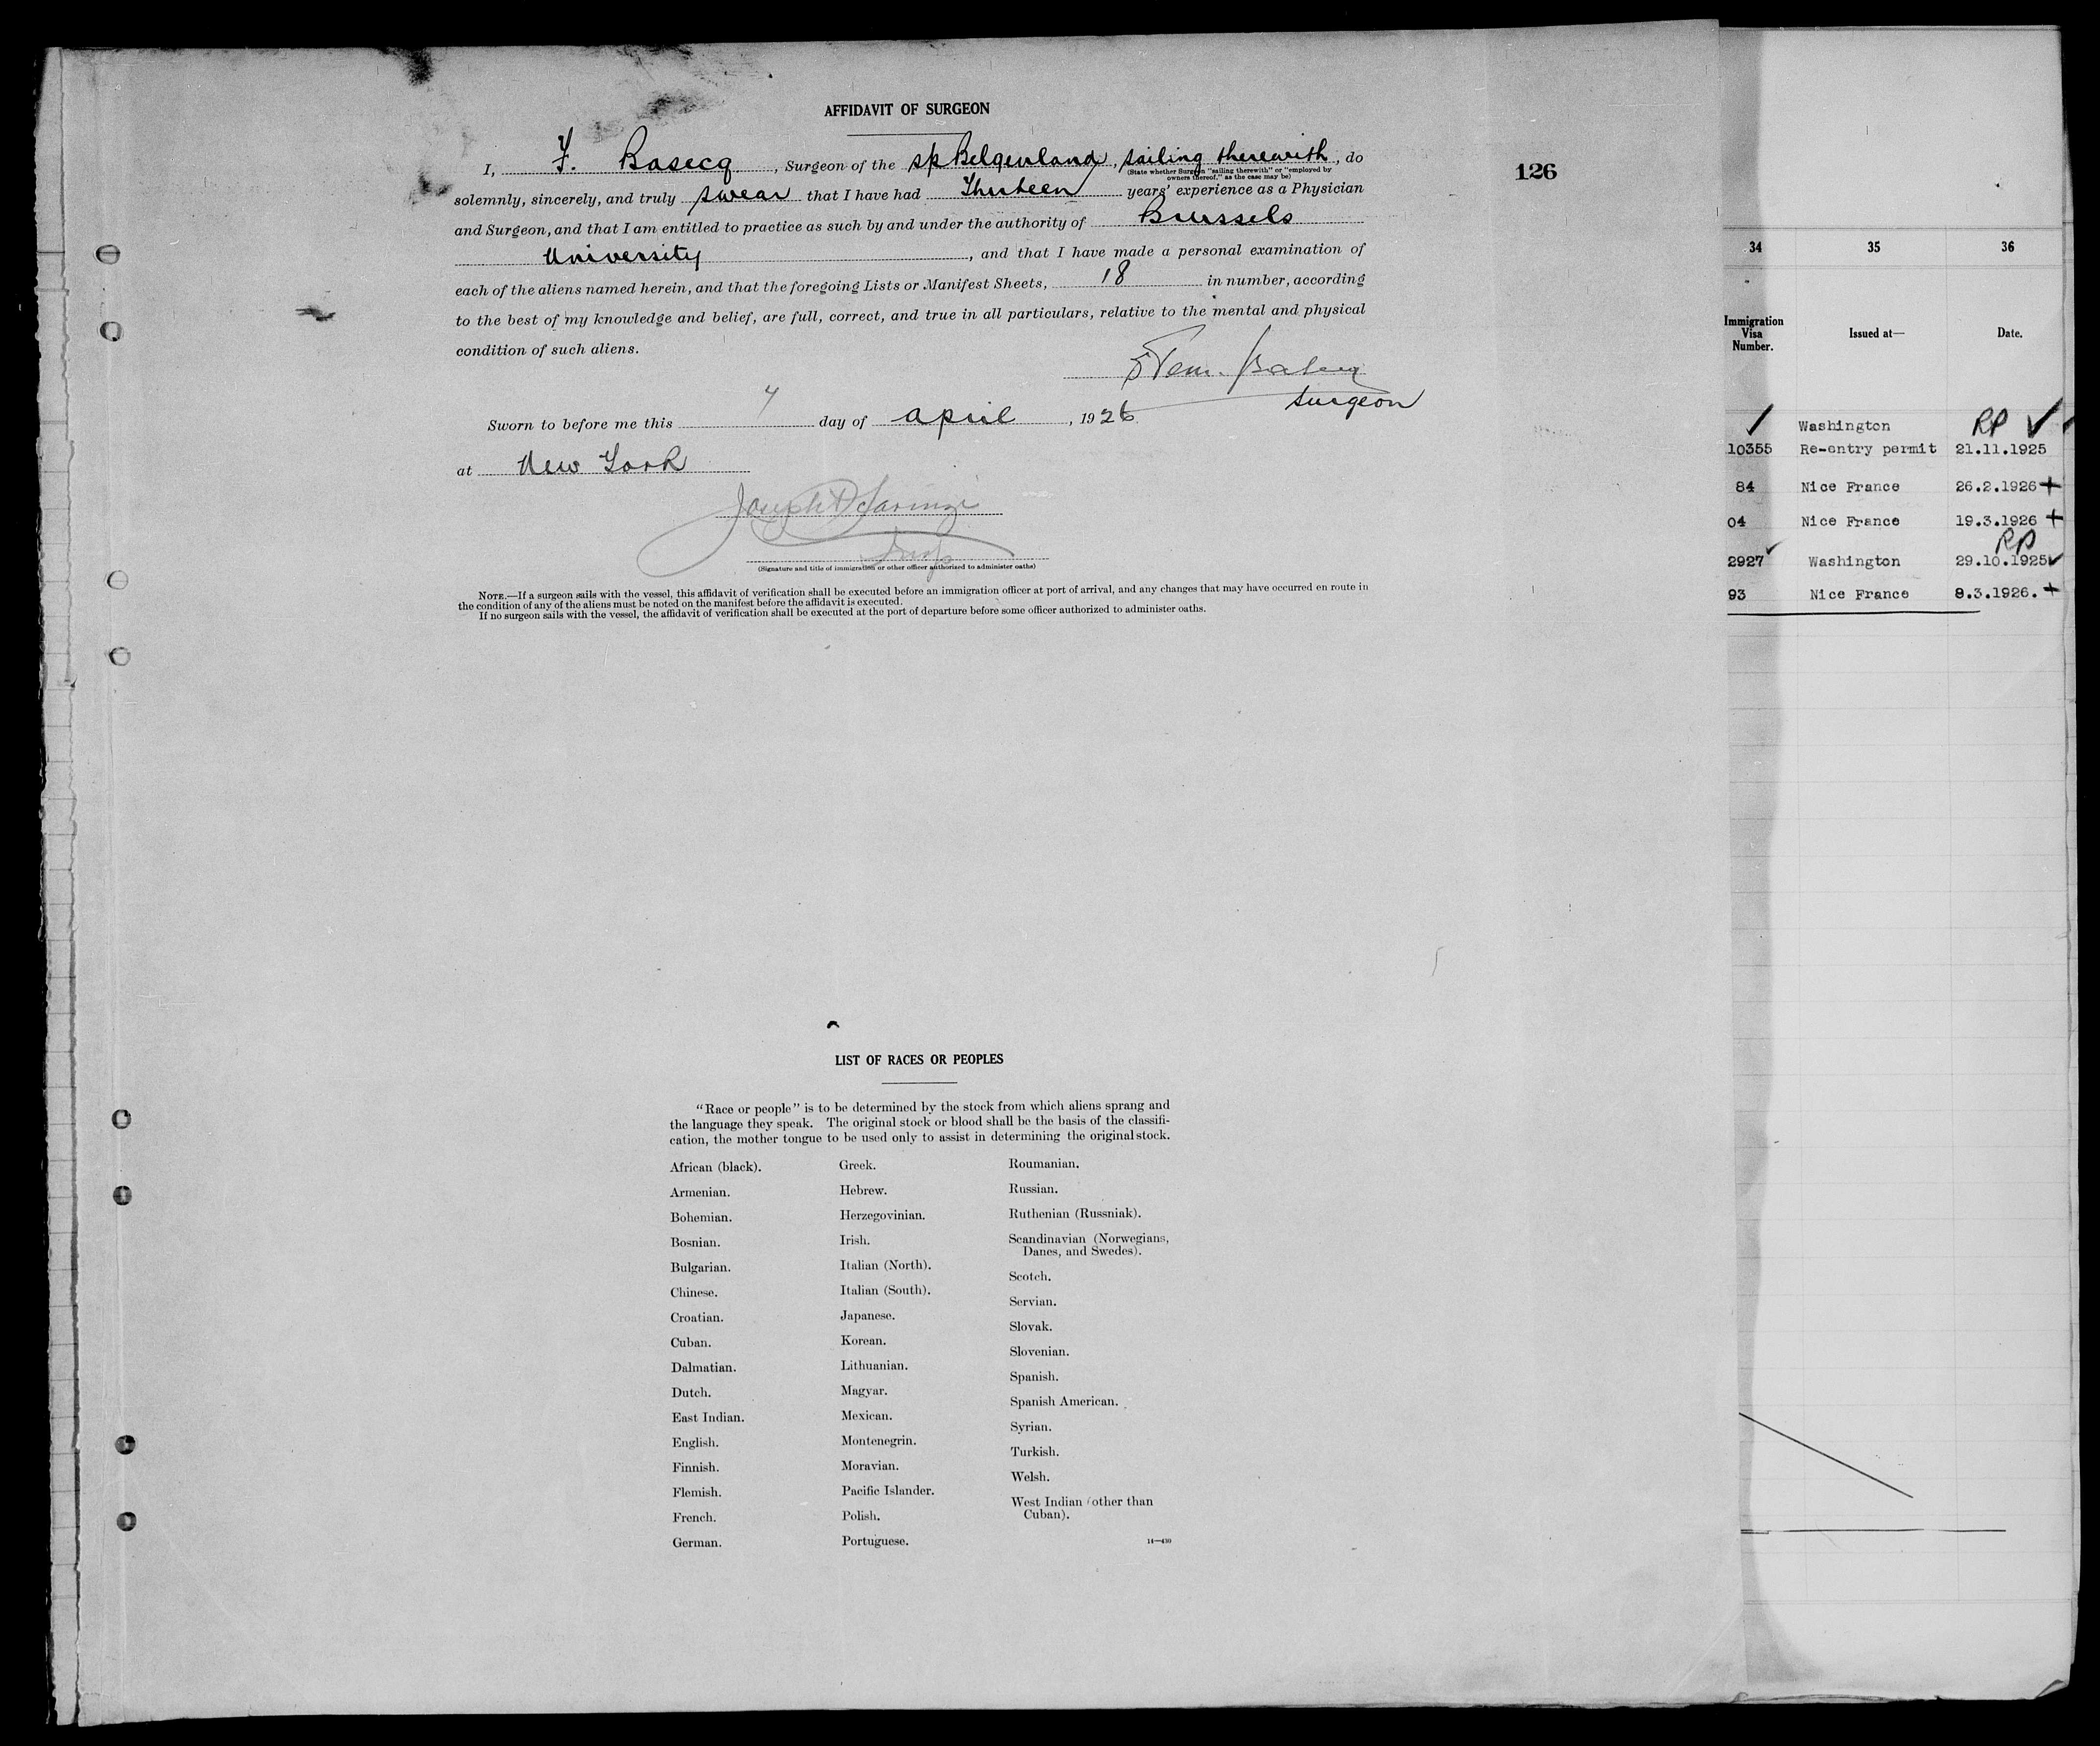 AFFIDAVIT OF SURGEON
126
I, F. Basecq, Surgeon of the s/s Belgenland, sailing therewith, do
(State whether Surgeon "sailing therewith" or "employed by
owners thereof," as the case may be)
solemnly, sincerely, and truly swear that I have had Thirteen years' experience as a Physician
and Surgeon, and that I am entitled to practice as such by and under the authority of Brussels
University, and that I have made a personal examination of
each of the aliens named herein, and that the foregoing Lists or Manifest Sheets, 18 in number, according
to the best of my knowledge and belief, are full, correct, and true in all particulars, relative to the mental and physical
condition of such aliens.
Surgeon
Sworn to before me this 4 day of April, 1926
at New York
(Signature and title of immigration or other officer authorized to administer oaths)
NOTE.—If a surgeon sails with the vessel, this affidavit of verification shall be executed before an immigration officer at port of arrival, and any changes that may have occurred en route in
the condition of any of the aliens must be noted on the manifest before the affidavit is executed.
If no surgeon sails with the vessel, the affidavit of verification shall be executed at the port of departure before some officer authorized to administer oaths.
LIST OF RACES OR PEOPLES
"Race or people" is to be determined by the stock from which aliens sprang and
the language they speak. The original stock or blood shall be the basis of the classifi-
cation, the mother tongue to be used only to assist in determining the original stock.
African (black).
Armenian.
Bohemian.
Bosnian.
Bulgarian.
Chinese.
Croatian.
Cuban.
Dalmatian.
Dutch.
East Indian.
English.
Finnish.
Flemish.
French.
German.
Greek.
Hebrew.
Herzegovinian.
Irish.
Italian (North).
Italian (South).
Japanese.
Korean.
Lithuanian.
Magyar.
Mexican.
Montenegrin.
Moravian.
Pacific Islander.
Polish.
Portuguese.
Roumanian.
Russian.
Ruthenian (Russniak).
Scandinavian (Norwegians,
Danes, and Swedes).
Scotch.
Servian.
Slovak.
Slovenian.
Spanish.
Spanish American.
Syrian.
Turkish.
Welsh.
West Indian (other than
Cuban).
14—430
34 35 36
Immigration
Visa
Number.
Issued at—
Date.
Washington RP
10355 Re-entry permit 21.11.1925
84 Nice France 26.2.1926
04 Nice France 19.3.1926
RP
2927 Washington 29.10.1925
93 Nice France 8.3.1926.